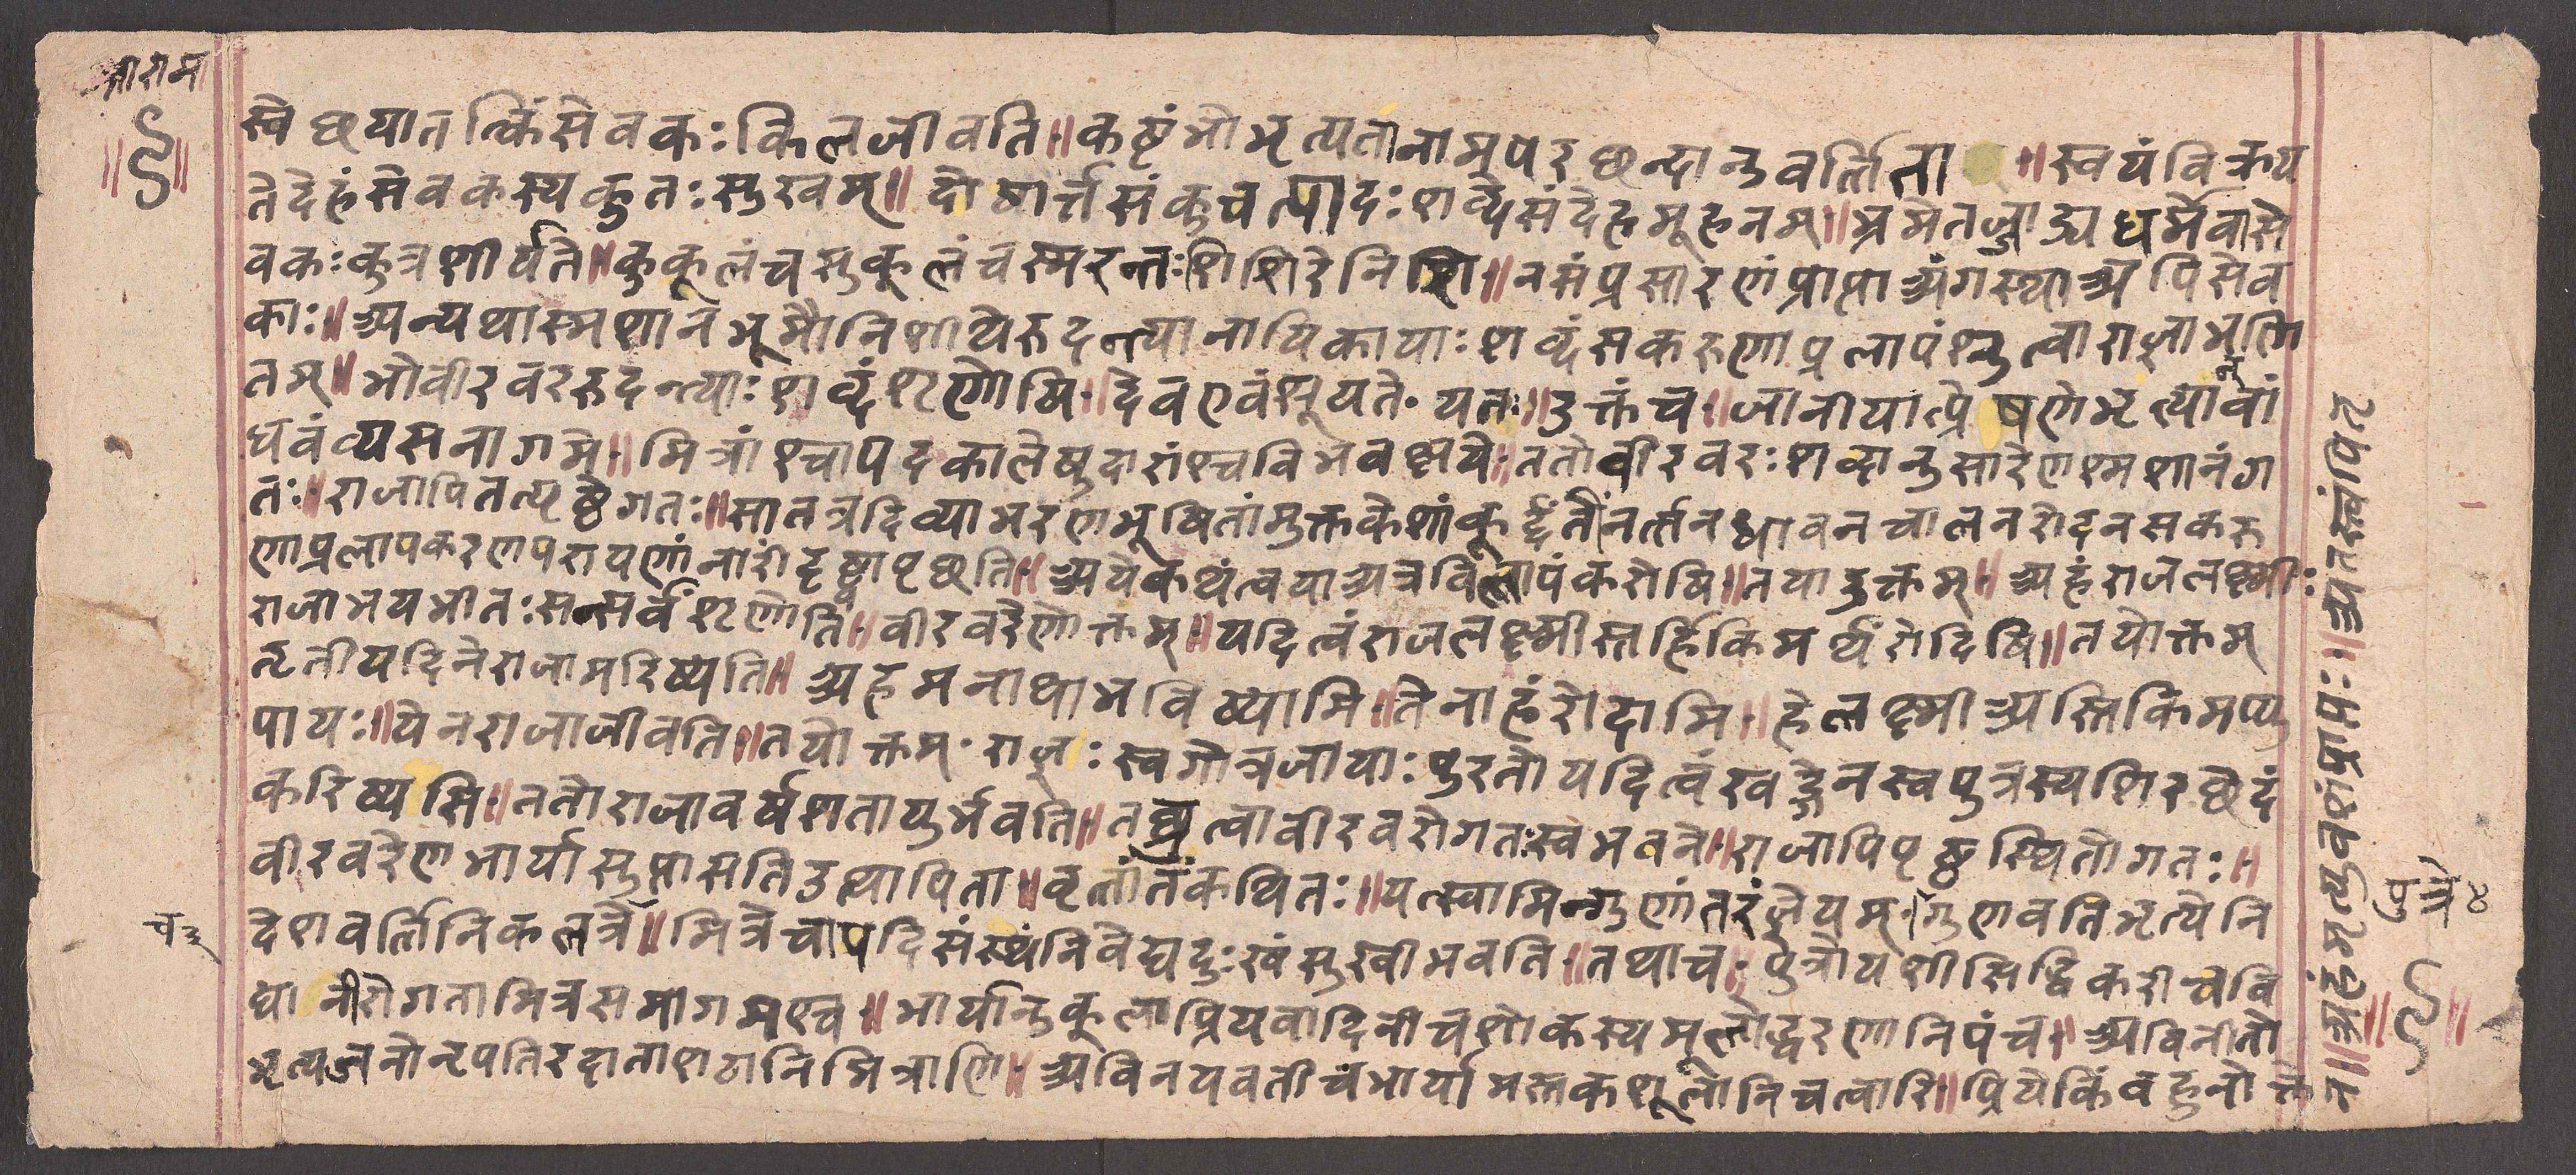 श्रीराम
स्वेछयातत्किंसेवकः किलजीवति॥कष्टंभोभृत्यतानामपरछन्दानुवर्त्तिता॥स्वयंविक्रय
तेदेहंसेवकस्यकुतः सुखम्॥दोषार्त्तसंकुचत्पादः शव्द्येसंदेहमूहनम्॥भ्रमेतज्जाड्यधर्मेवासे
वकः कुत्रशीर्यते॥कुकूलंचसुकूलंचस्मरन्तः शिशिरेनिशि॥नसंप्रसारणंप्राप्ताअंगस्थाअपिसेव
काः॥अन्यथास्मशानभूमौनिशीथेरुदन्त्यानायिकायाः शव्दंसकरुणाप्रलापंश्रुत्वाराज्ञाभणि
तम्॥भोवीरवररुदन्त्याः शव्दंशृणोषि॥देवएवंश्रूयते॰यतः॥उक्तंच॥जानीयात्प्रेषणेभृत्यान्वां
धवंव्यसनागमे॥मित्रांश्चापदकालेषुदारांश्चविभवक्षये॥ततोवीरवरः शव्दानुसारेणश्मशानंग
तः॥राजापितत्पृष्ठेगतः॥सातत्रदिव्याभरणभूषितांमुक्तकेशांकूर्द्दंतींनर्त्तनधावनचालनरोदनसकरु
णाप्रलापकरणपरायणांनारींदृष्ट्वापृछति॥अयेकथंत्वयाअत्रविलापंकरोषि॥तयाउक्तम्॥अहंराजलक्ष्मीः
राजाभयभीतः सन्सर्वंशृणोति॥वीरवरेणोक्तम्॥यदित्वंराजलक्ष्मीस्तर्हिकिमर्थंरोदिषि॥तयोक्तम्
तृतीयदिनेराजामरिष्यति॥अहमनाथाभविष्यामि॥तेनाहंरोदामि॥हेलक्ष्मीअस्तिकिंमप्यु
पायः॥येनराजाजीवति॥तयोक्तम्॰राज्ञः स्वगोत्रजायाः पुरतोयदित्वंखड्गेनस्वपुत्रस्यशिरछेदं
करिष्यसि॥ततोराजावर्षशतायुर्भवति॥तछ्रुत्वावीरवरोगतः स्वभवने॥राजापिपृष्ठस्थितोगतः॥
वीरवरेणभार्यासुप्तासतिउत्थापिता॥वृत्तांतंकथितः॥यत्स्वामिन्गुणांतरंज्ञेयम्॥गुणवतिभृत्येनि
देशवर्तिनिकलत्रे॥मित्रेचापदिसंस्थंनिवेद्यदुःखंसुखीभवति॥तथाच॥पुत्रोयशीसिद्धिकरीचवि
द्यानीरोगतामित्रसमागमश्च॥भार्यानुकूलाप्रियवादिनीचशोकस्यमूलोद्धरणानिपंच॥अविनीतो
भृत्यजनोनृपतिरदाताशठानिमित्राणि॥अविनयवतीचभार्यामस्तकशूलानिचत्वारि॥प्रियेकिंवहुनोक्ते
न॥अहंमृत्युवशंप्राप्तः॥अतस्त्वंपितृ
पुत्रे४